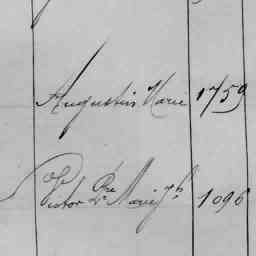 Augustin Marie 1759
Victor Pre Marie Jh 1096